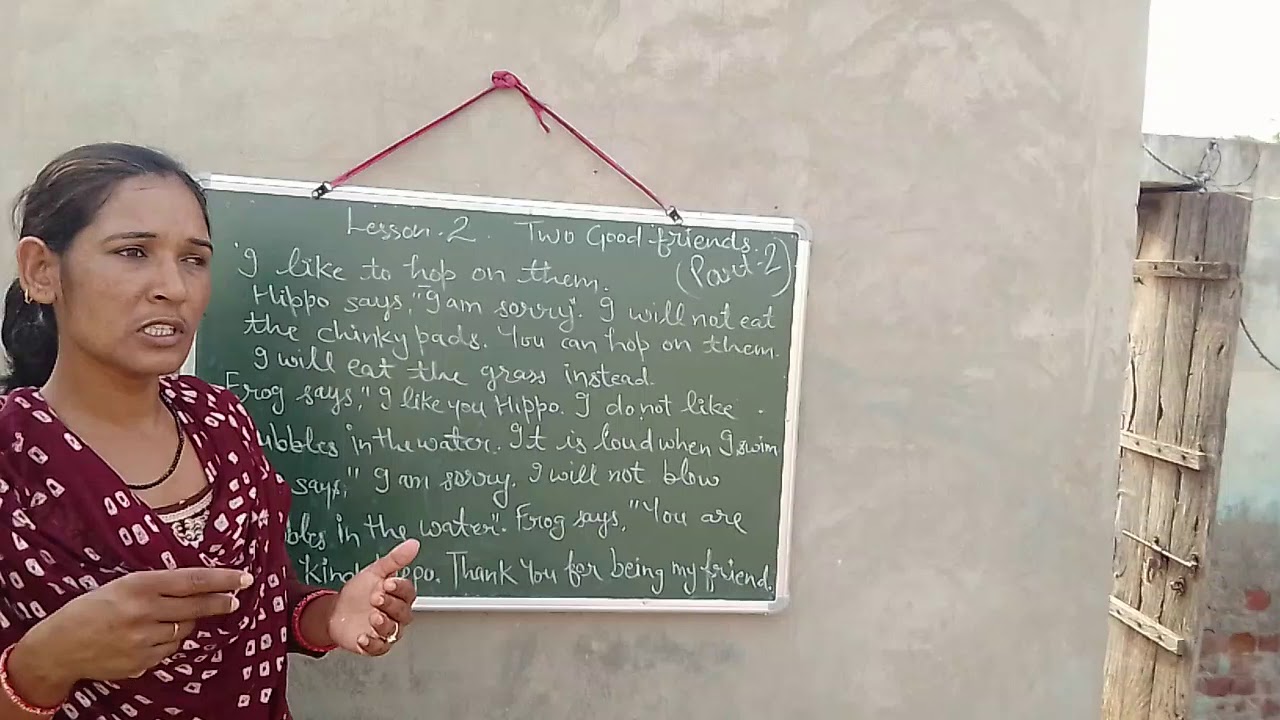 Lesson.2. Two Good friends.
(Part-2)
"I like to hop on them.
Hippo says, "I am sorry". I will not eat
the chinky pads. You can hop on them.
I will eat the grass instead.
Frog says," I like you Hippo. I do not like
in the water. It is loud when I swim
says," I am sorry. I will not blow
in the water". Frog says, "You are
kind Thank You for being my friend.